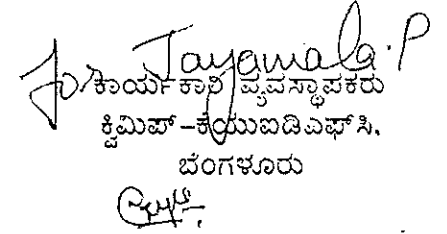 for Jayamala.P
ಕಾರ್ಯಕಾರಿ ವ್ಯವಸ್ಥಾಪಕರು
ಕ್ವಿಮಿಪ್-ಕೆಯುಐಡಿಎಫ್‌ಸಿ.
ಬೆಂಗಳೂರು